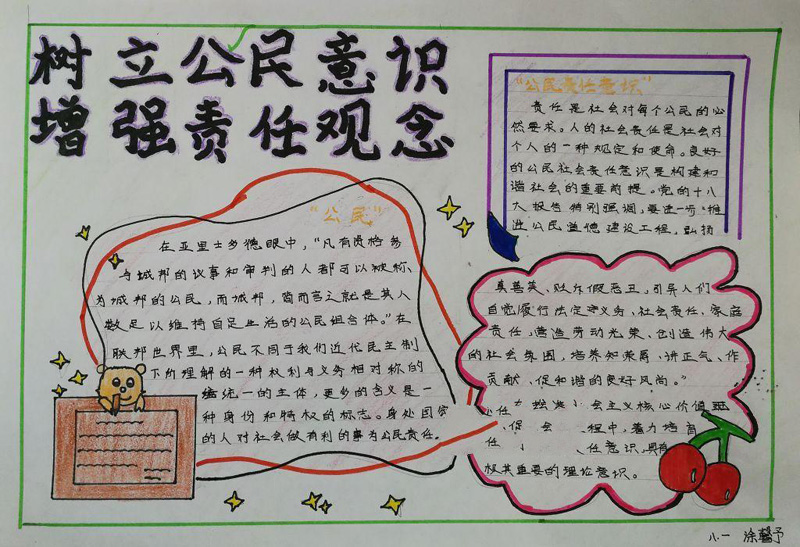 树立公民意识
增强责任观念
"公民"
在亚里士多德眼中，"凡有资格务
与城邦的议事和审判的人都可以被称
为城邦的公民，而城邦，简而言之就是其人
数足以维持自足生活的公民组合体。"在
联邦世界里，公民不同于我们近代民主制
下所理解的一种权利与义务相对称的
统一的主体，更多的含义是一
种身份和特权的标志。身处国家
的人对社会做有利的事为公民责任。
"公民责任意识"
责任是社会对每个公民的必
然要求。人的社会责任是社会对
个人的一种规定和使命。良好
的公民社会责任意识是构建和
谐社会的重要前提。党的十八
大报告特别强调，要进一步"推
进公民道德建设工程，弘扬
真善美、贬斥假恶丑，引导人们
自觉履行法定义务、社会责任、家庭
责任，营造劳动光荣、创造伟大
的社会氛围，培养知荣辱、讲正气、作
贡献、促和谐的良好风尚。"
任 会主义核心价值
促 会 程中，着力培育
任 任意识，具有
极其重要的理论意识。
八.一 涂馨予